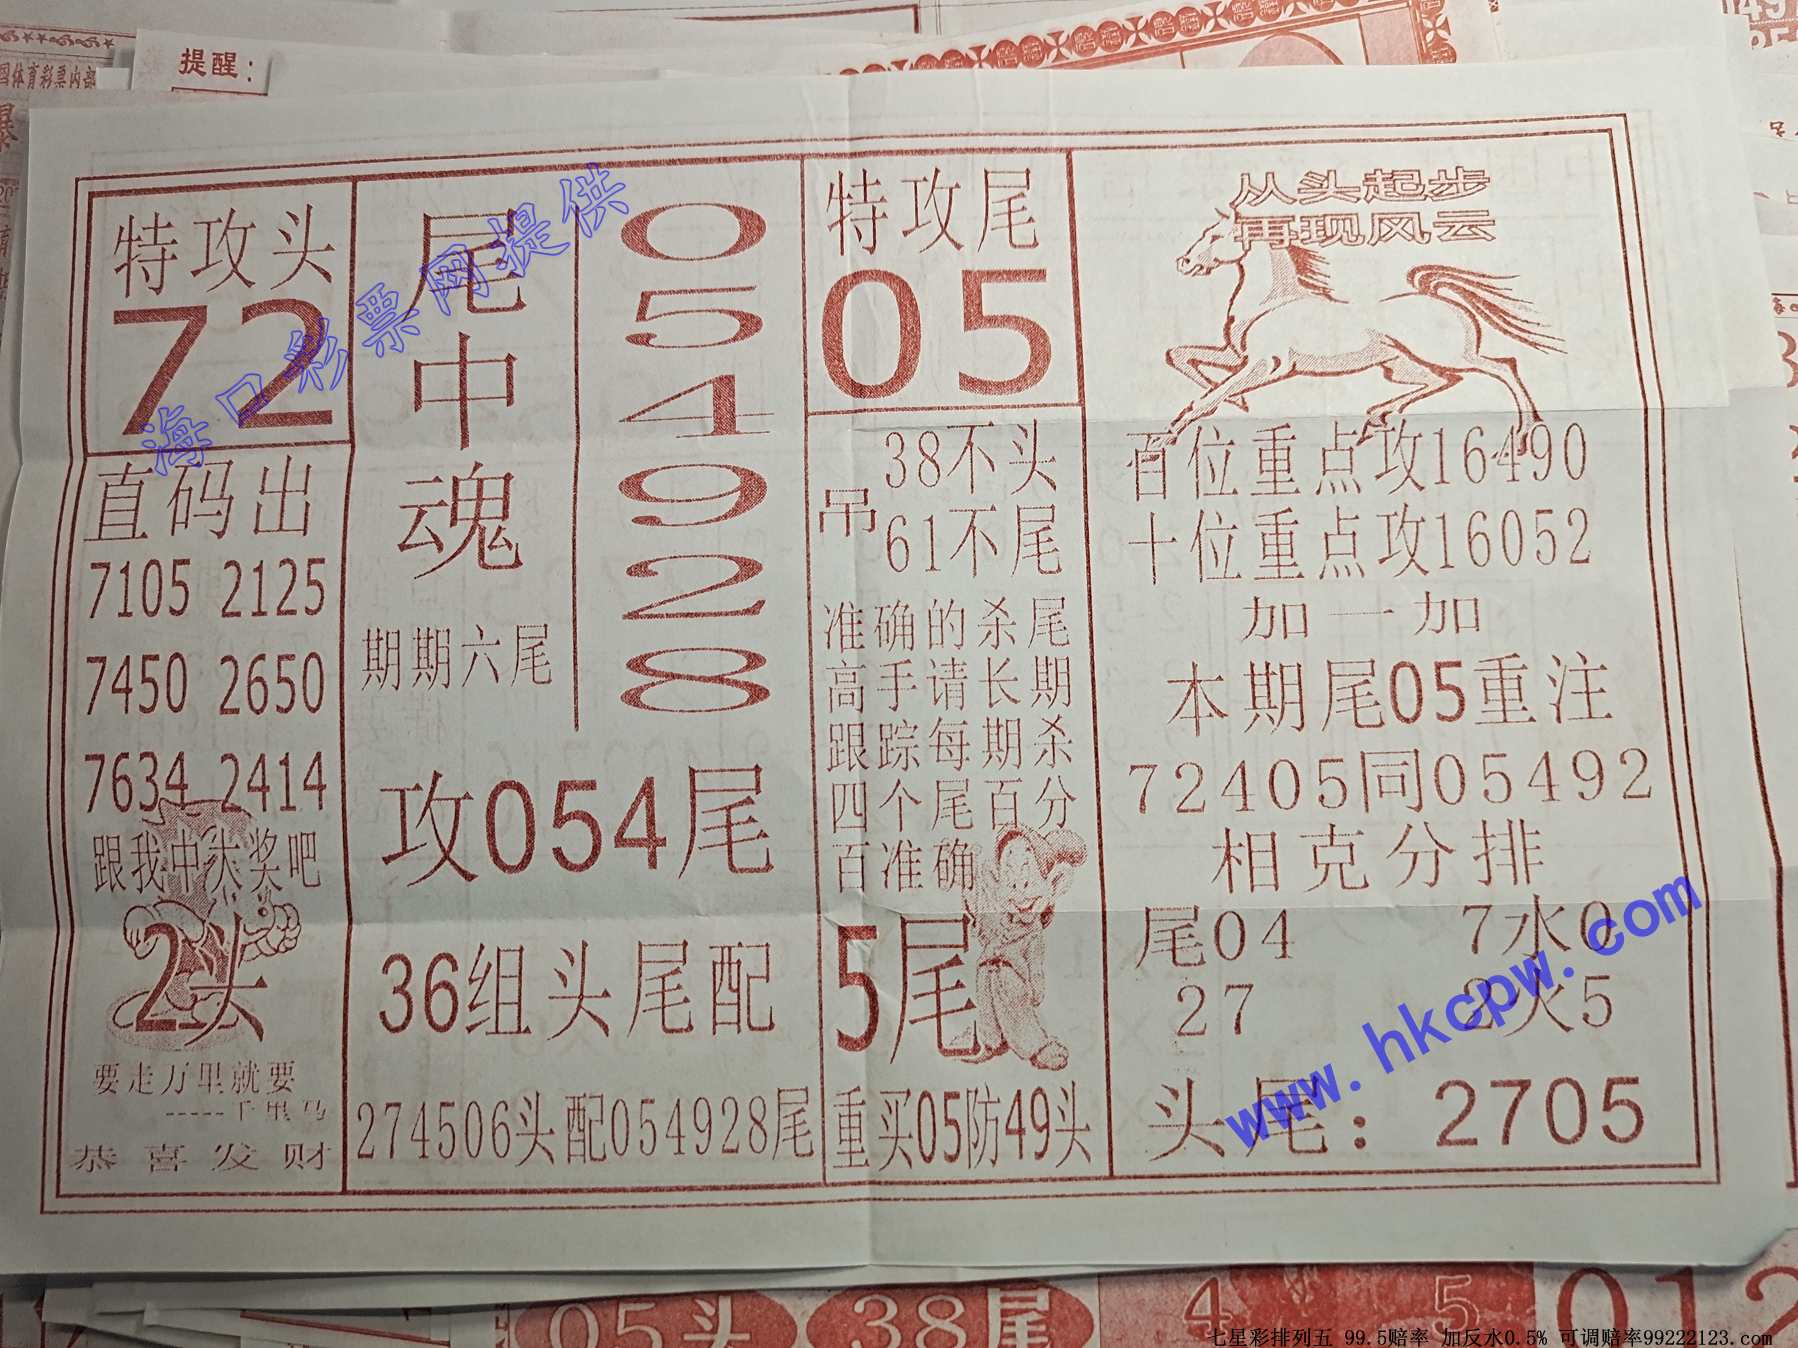 提醒：
国体育彩票内部
特攻头
72
直码出
7105 2125
7450 2650
7634 2414
跟我中大奖吧
2头
要走万里就要
-----千里马
恭喜发财
尾中魂
期期六尾
0
5
4
9
2
8
攻054尾
36组头尾配
274506头配054928尾
特攻尾
05
吊
38不头
61不尾
准确的杀尾
高手请长期
跟踪每期杀
四个尾百分
百准确
5尾
重买05防49头
从头起步
再现风云
百位重点攻16490
十位重点攻16052
加一加
本期尾05重注
72405同05492
相克分排
尾04 7水0
27 2火5
头尾：2705
海口彩票网提供
www.hkcpw.com
05头 38尾 4 5 012
七星彩排列五 99.5赔率 加反水0.5% 可调赔率99222123.com